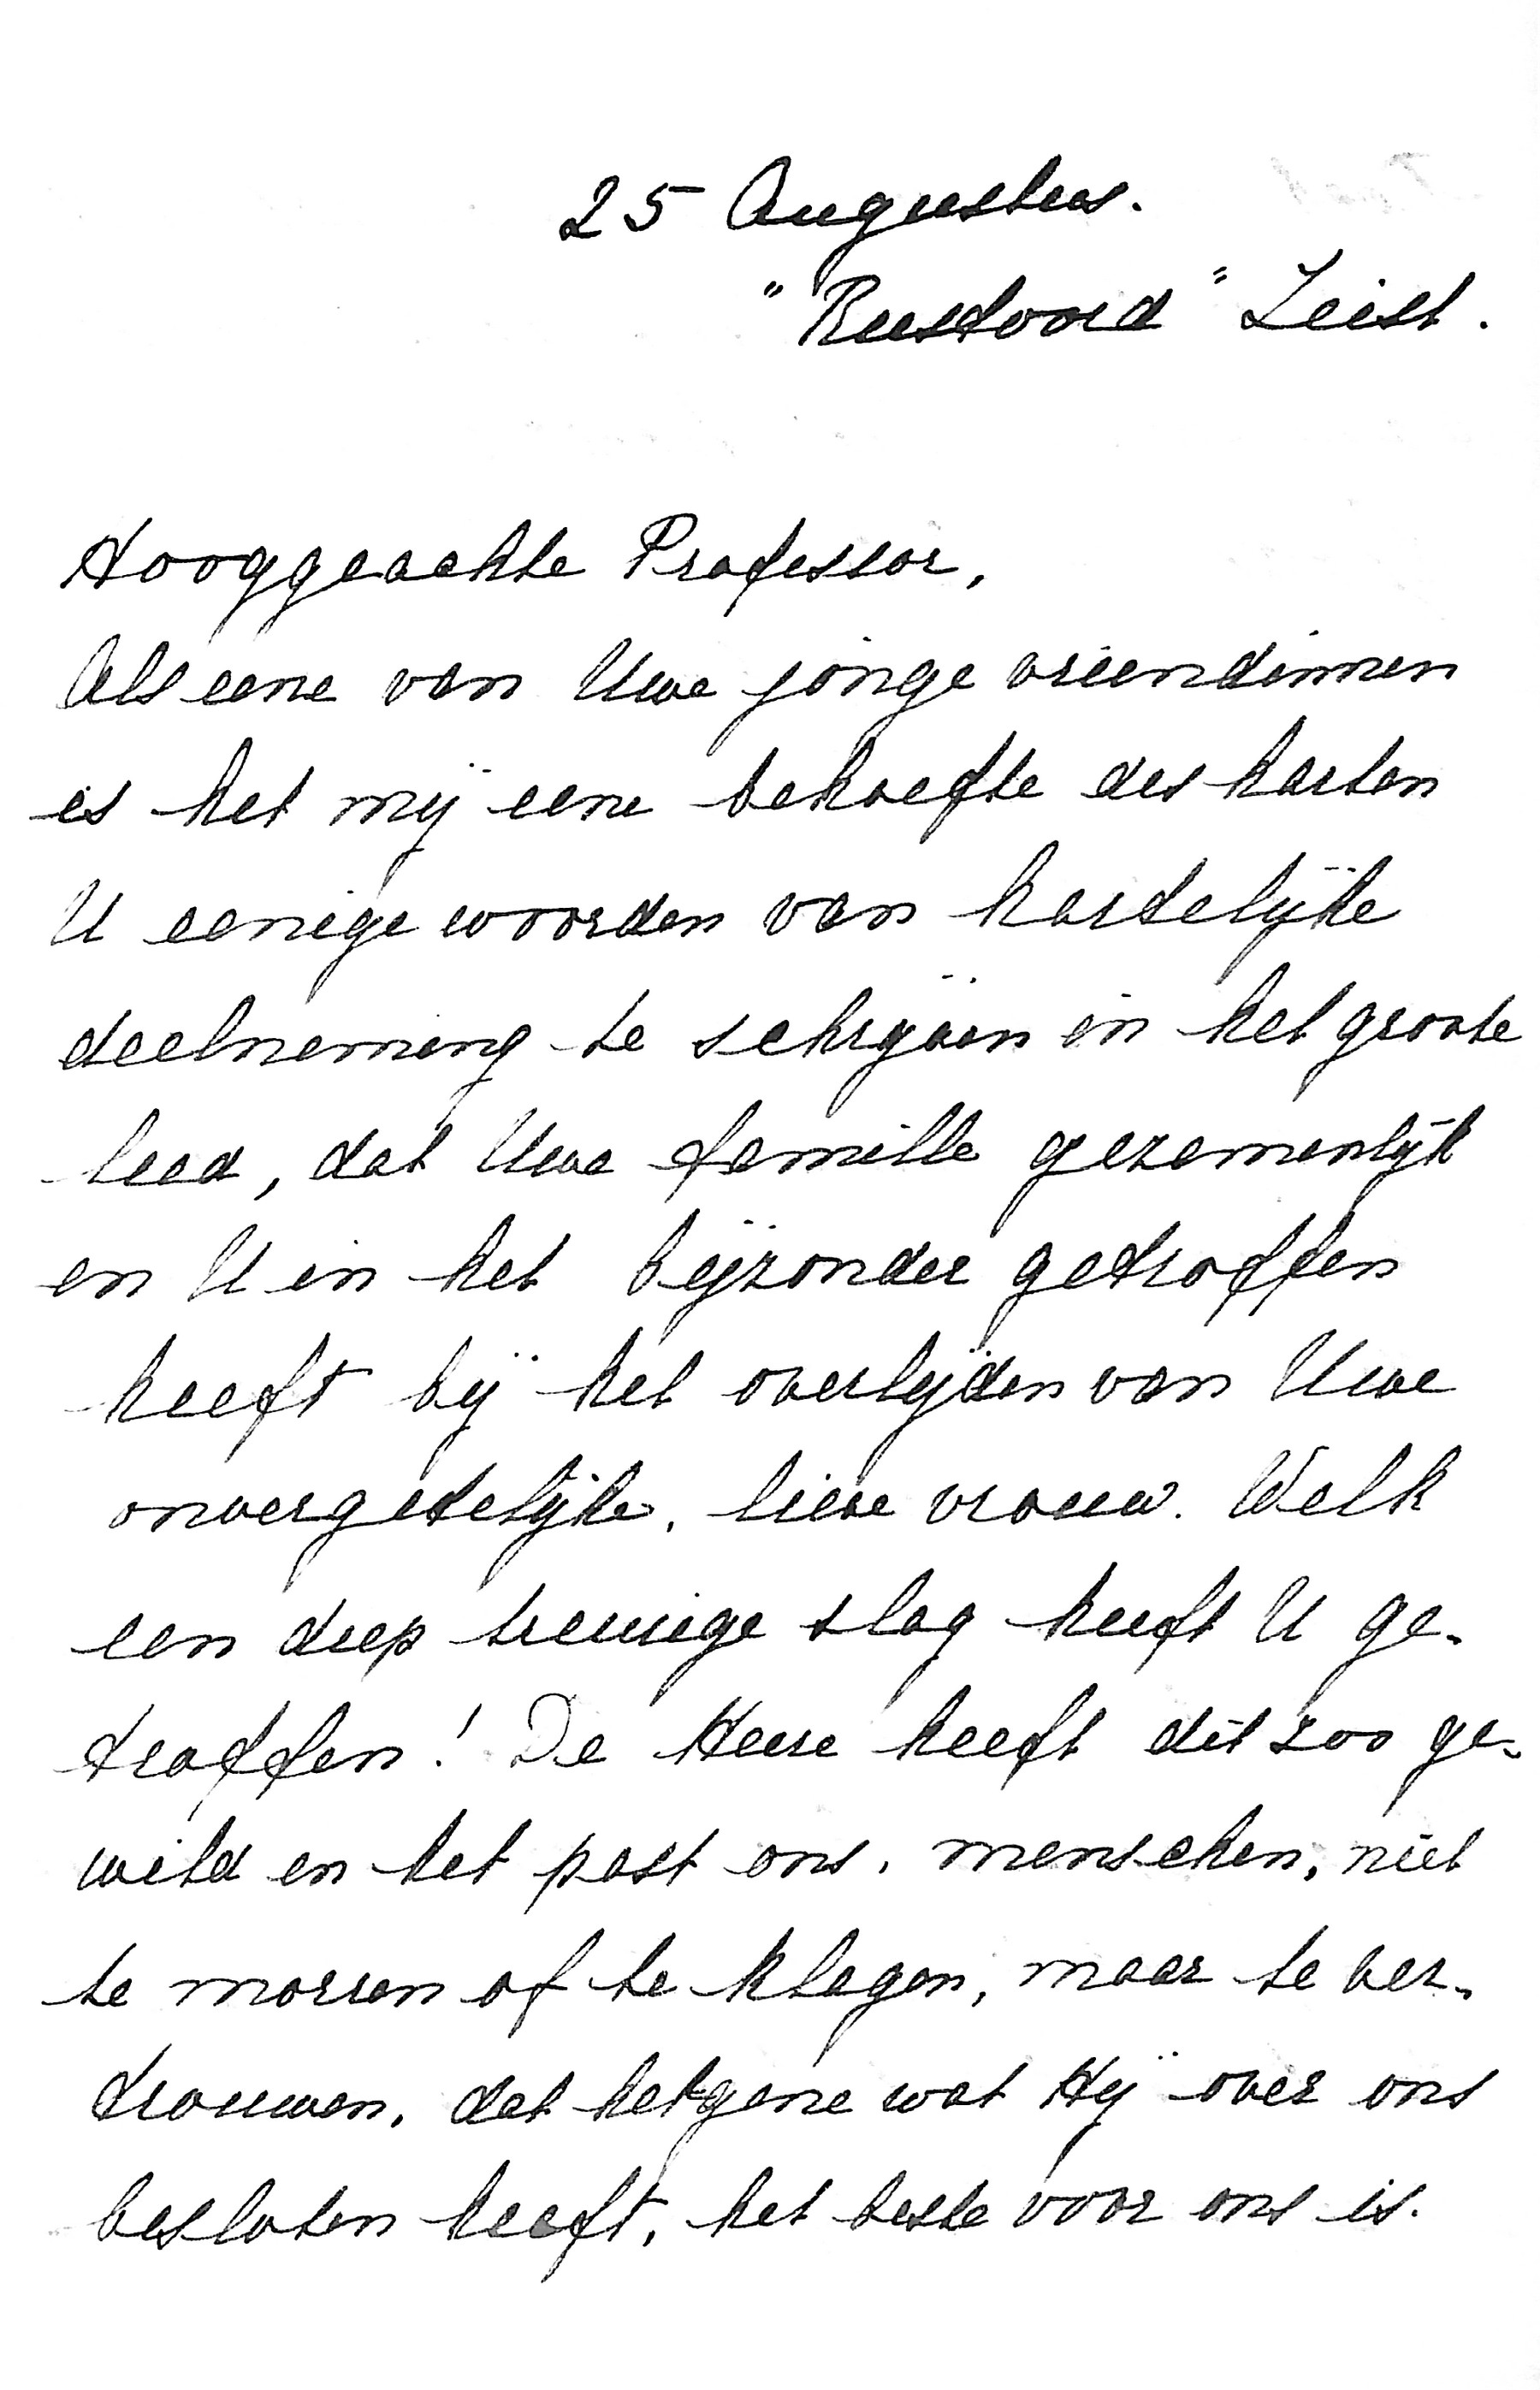 25 Augustus.
"Rustoord" Zeist.
Hooggeachte Professor,
Als eene van Uwe jonge vriendinnen
is het mij eene behoefte des harten
U eenige woorden van hartelijke
deelneming te schrijven in het groote
leed, dat Uwe familie gezamenlijk
en U in het bijzonder getroffen
heeft bij het overlijden van Uwe
onvergetelijke, lieve vrouw. Welk
een diep treurige slag heeft U ge-
troffen! De Heere heeft dit zoo ge-
wild en het past ons, menschen, niet
te morren of te klagen, maar te ver-
trouwen, dat hetgene wat Hij over ons
besloten heeft, het beste voor ons is.